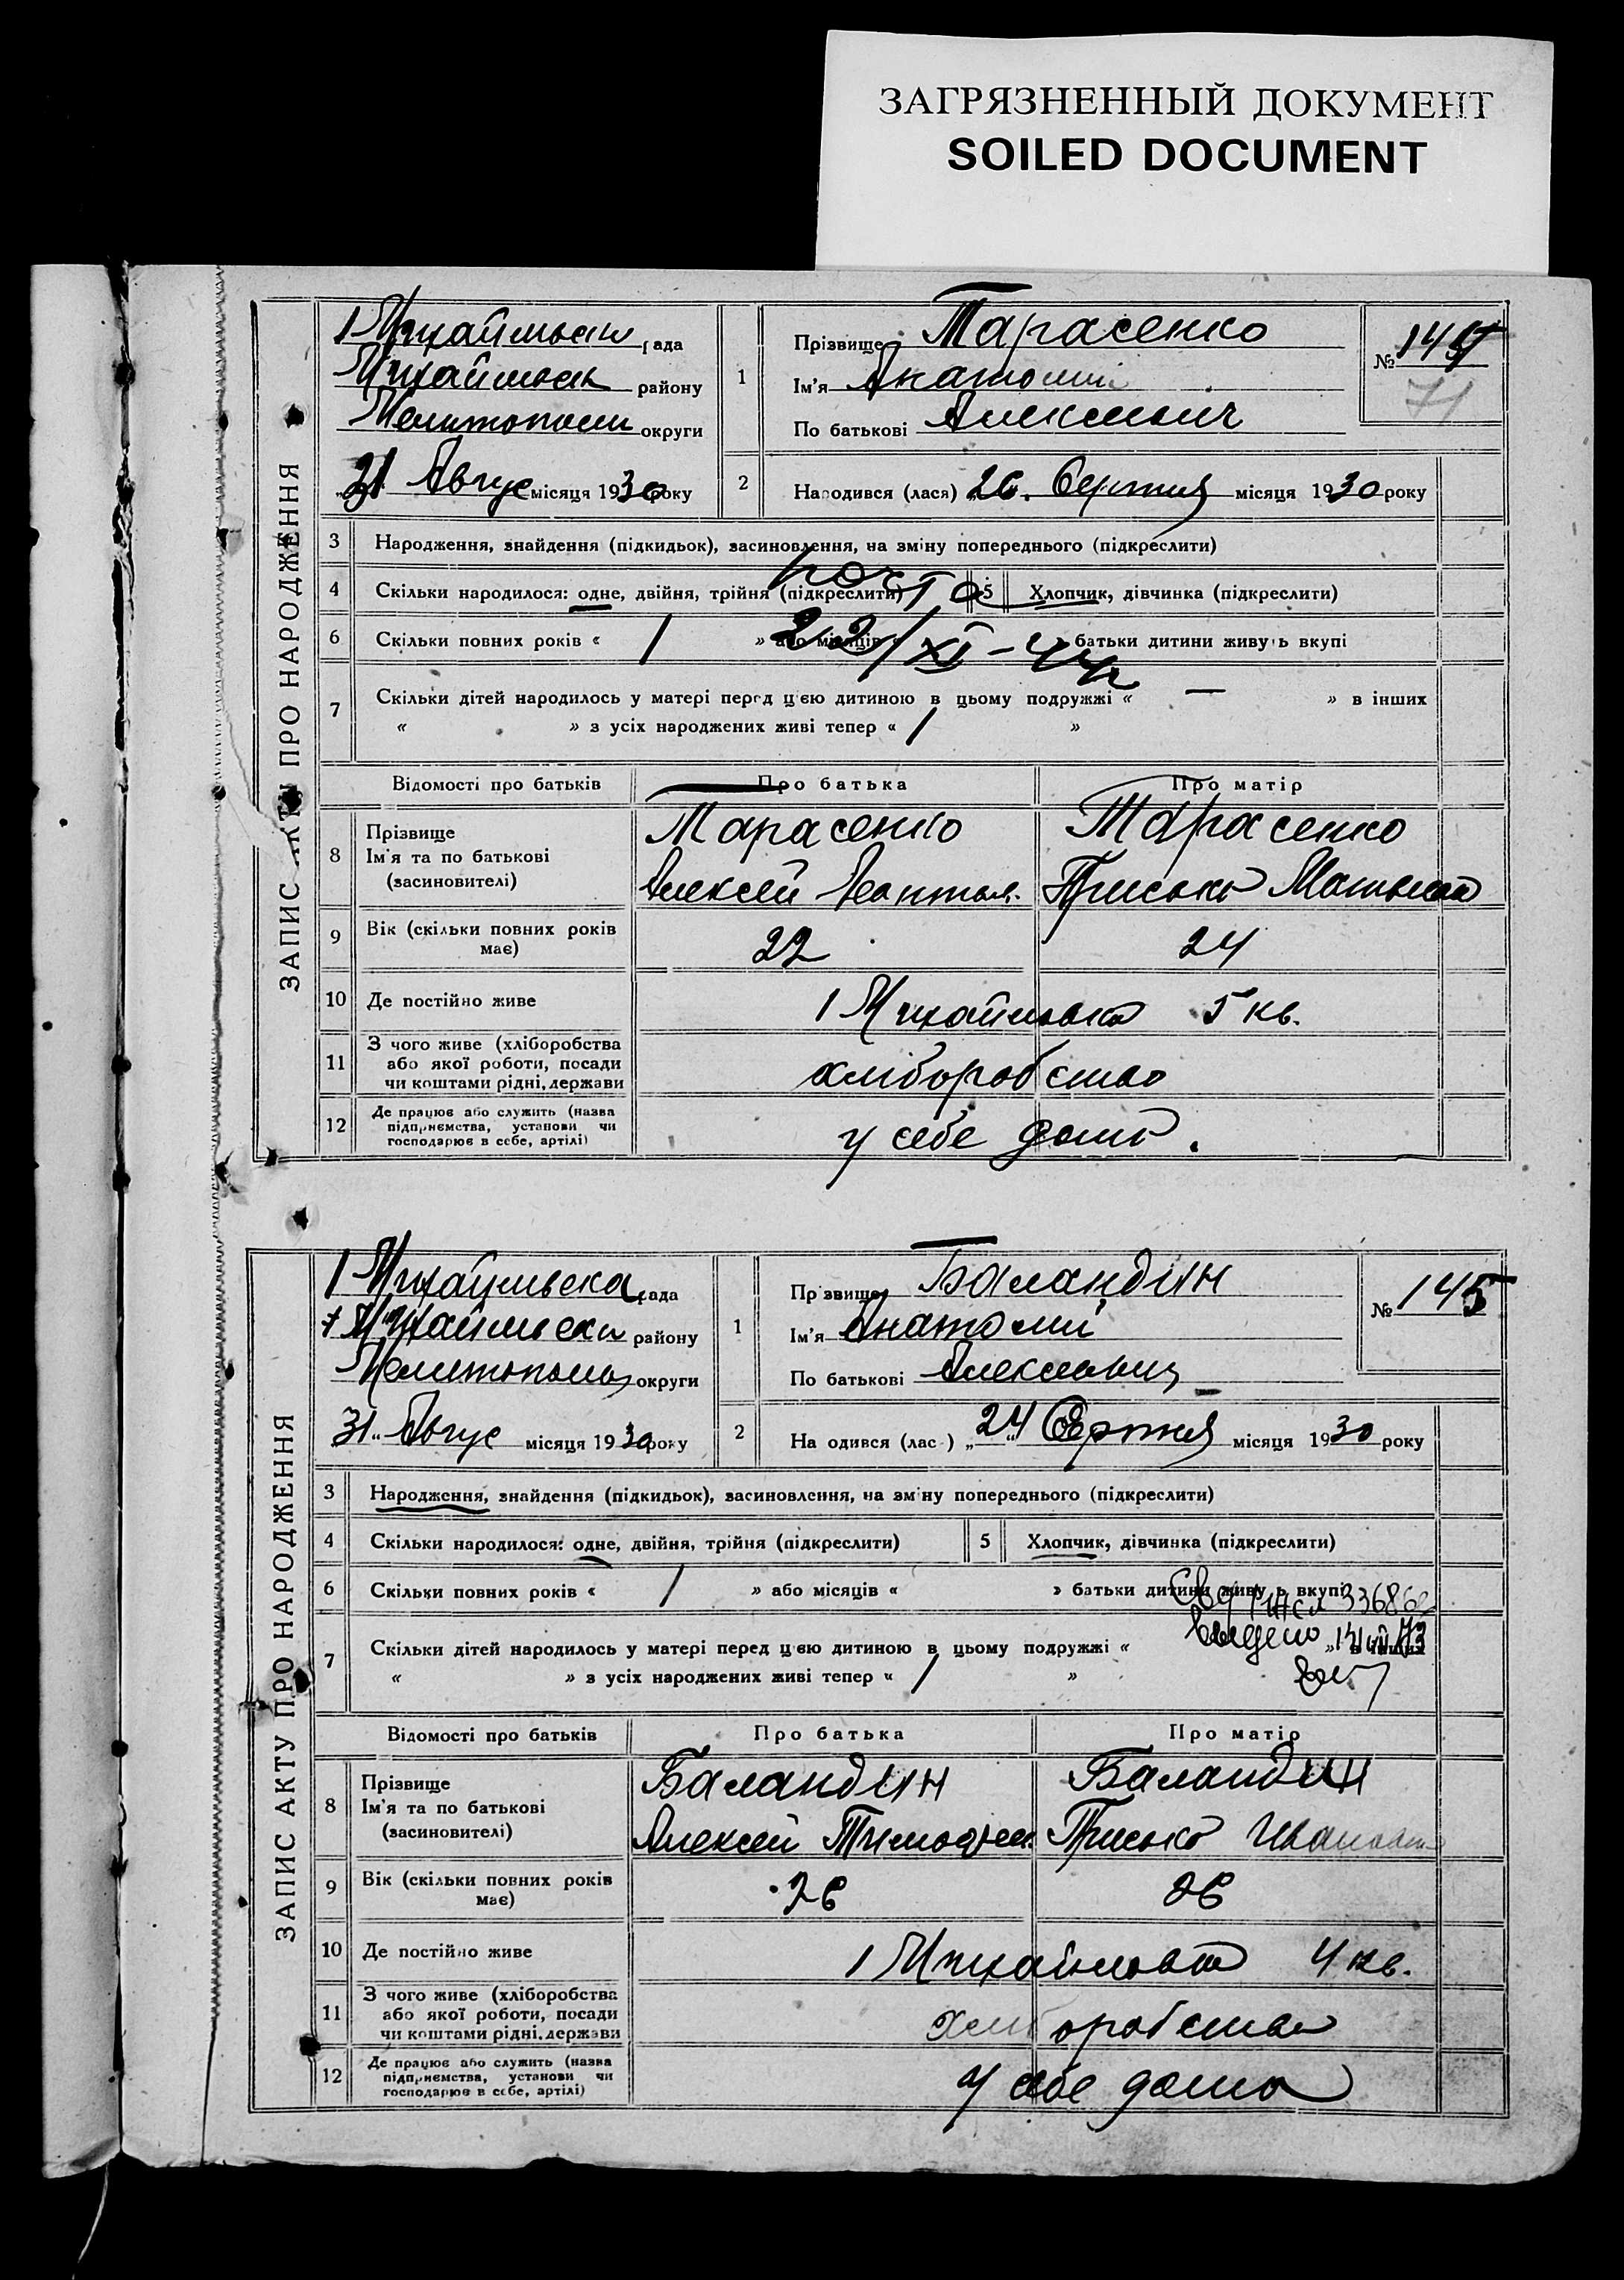 ЗАГРЯЗНЕННЫЙ ДОКУМЕНТ
SOILED DOCUMENT
ЗАПИС АКТУ ПРО НАРОДЖЕННЯ
рада
району
округи
31 Авгус місяця 1930 року
1
Прізвище Тарасенко
Ім'я
По батькові Алексеевич
№
71
2
Народився (лася) „26. Серпня місяця 1930 року
3 Народження, знайдення (підкидьок), засиновлення, на зміну попереднього (підкреслити)
4 Скільки народилося: одне, двійня, трійня (підкреслити) 5 Хлопчик, дівчинка (підкреслити)
6 Скільки повних років « 1 » або місяців « батьки дитини живуть вкупі
22/XI-44р
7 Скільки дітей народилось у матері перед цією дитиною в цьому подружжі « — » в інших
« » з усіх народжених живі тепер « 1 »
Відомості про батьків Про батька Про матір
8 Прізвище Тарасенко Тарасенко
Ім'я та по батькові
(засиновителі) Алексей
9 Вік (скільки повних років має) 22 24
10 Де постійно живе 1 Михайловка 5 кв.
11 З чого живе (хліборобства
або якої роботи, посади
чи коштами рідні, держави хлібороб'ство
12 Де працює або служить (назва
підприємства, установи чи
господарює в себе, артілі) у себе дома.
ЗАПИС АКТУ ПРО НАРОДЖЕННЯ
1 Михайлівська рада
району
округи
31 „ Авгус місяця 1930 року
1
Прізвище Баландин
Ім'я Анатолий
По батькові Алексеевич
№ 145
2
На одився (лас ) „24“ Серпня місяця 1930 року
3 Народження, знайдення (підкидьок), засиновлення, на зміну попереднього (підкреслити)
4 Скільки народилося: одне, двійня, трійня (підкреслити) 5 Хлопчик, дівчинка (підкреслити)
6 Скільки повних років « 1 » або місяців « » батьки дитини живуть вкупі
7 Скільки дітей народилось у матері перед цією дитиною в цьому подружжі « » в інших
« » з усіх народжених живі тепер « 1 »
Відомості про батьків Про батька Про матір
8 Прізвище Баландин Баландин
Ім'я та по батькові
(засиновителі) Алексей
9 Вік (скільки повних років має) 26 26
10 Де постійно живе 1 Михайловка 4 кв.
11 З чого живе (хліборобства
або якої роботи, посади
чи коштами рідні, держави хлібороб'ства
12 Де працює або служить (назва
підприємства, установи чи
господарює в себе, артілі) у себе дома